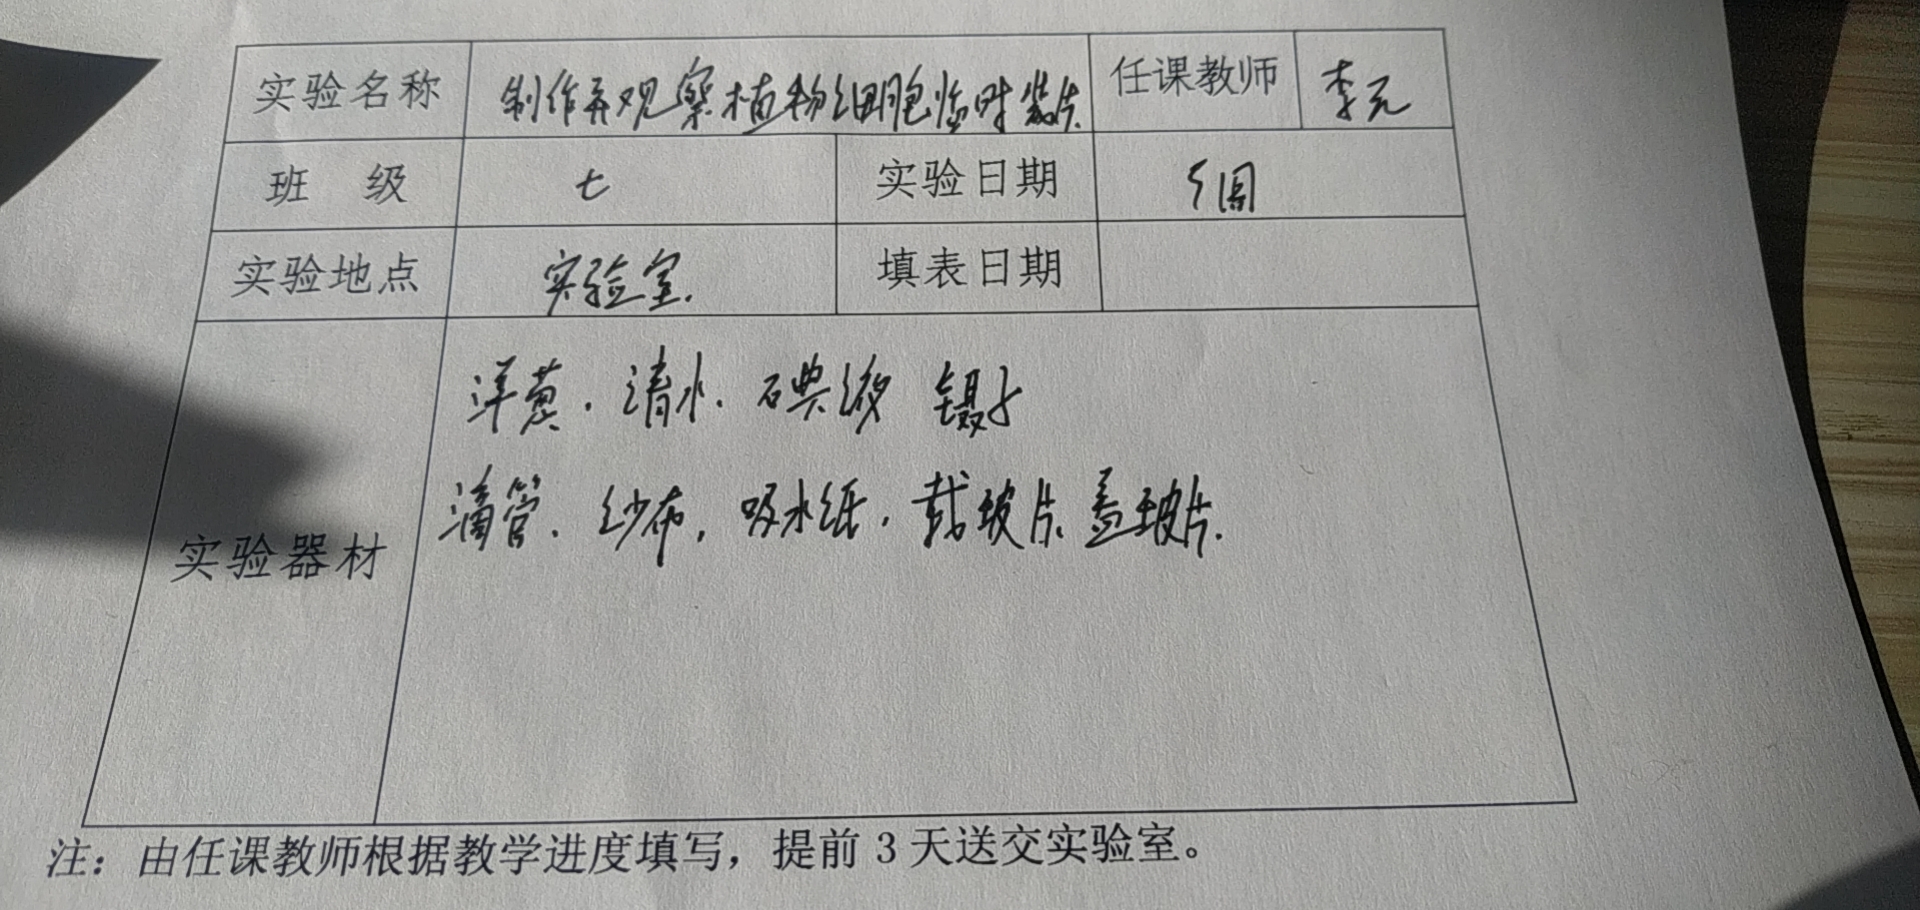 实验名称 制作并观察植物细胞临时装片 任课教师 李元
班 级 七 实验日期 5周
实验地点 实验室. 填表日期
洋葱. 清水. 碘液 镊子
实验器材 滴管. 纱布, 吸水纸. 载玻片. 盖玻片.
注：由任课教师根据教学进度填写，提前 3 天送交实验室。